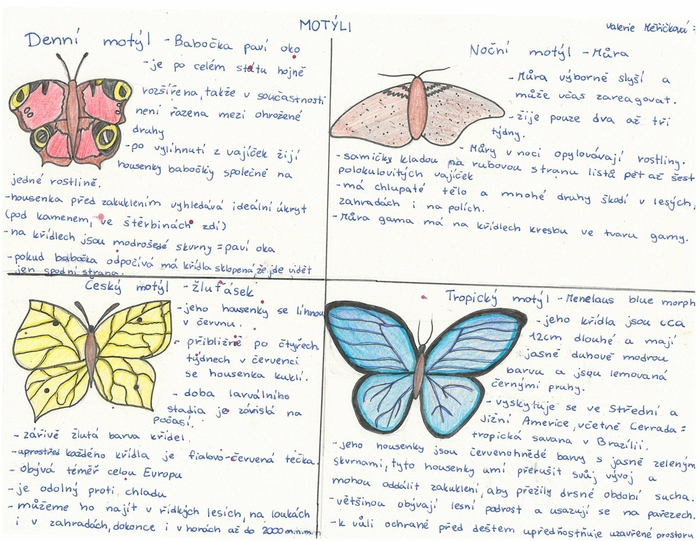 MOTÝLI
Valerie Měřičková
Denní motýl - Babočka paví oko
-je po celém státu hojně
rozšířena, takže v součastnosti
není řazena mezi ohrožené
druhy
-po vylíhnutí z vajíček žijí
housenky babočky společně na
jedné rostlině.
-housenka před zakuklením vyhledává ideální úkryt
(pod kamenem, ve štěrbinách zdí)
-na křídlech jsou modrošedé skvrny = paví oka
-pokud babočka odpočívá má křídla sklopená, že jde vidět
jen spodní strana.
Noční motýl - Můra
-Můra výborně slyší a
může včas zareagovat.
-žije pouze dva až tři
týdny.
-Můry v noci opylovávají rostliny.
-samičky kladou na rubovou stranu listů pět až šest
polokulovitých vajíček
-má chlupaté tělo a mnohé druhy škodí v lesých,
zahradách i na polích.
-Můra gama má na křídlech kresbu ve tvaru gamy.
Český motýl - žluťásek
-jeho housenky se líhnou
v červnu.
- přibližně po čtyřech
týdnech v červenci
se housenka kuklí.
- doba larválního
stadia je závislá na
počasí.
- zářivě žlutá barva křídel.
-uprostřed každého křídla je fialovo-červená tečka.
- obývá téměř celou Evropu
-je odolný proti chladu
- můžeme ho najít v řídkých lesích, na loukách
i v zahradách, dokonce i v horách až do 2000 m.n.m
Tropický motýl - Menelaus blue morph
-jeho křídla jsou cca
12cm dlouhé a mají
jasně duhově modrou
barvu a jsou lemovaná
černými pruhy.
-vyskytuje se ve Střední a
Jižní Americe, včetně Cerrada =
tropická savana v Brazílii.
-jeho housenky jsou červenohnědé barvy s jasně zelenými
skvrnami, tyto housenky umí přerušit svůj vývoj a
mohou oddálit zakuklení, aby přežily drsné období sucha.
-většinou obývají lesní podrost a usazují se na pařezech.
-k vůli ochraně před deštěm upřednostňuje uzavřené prostory